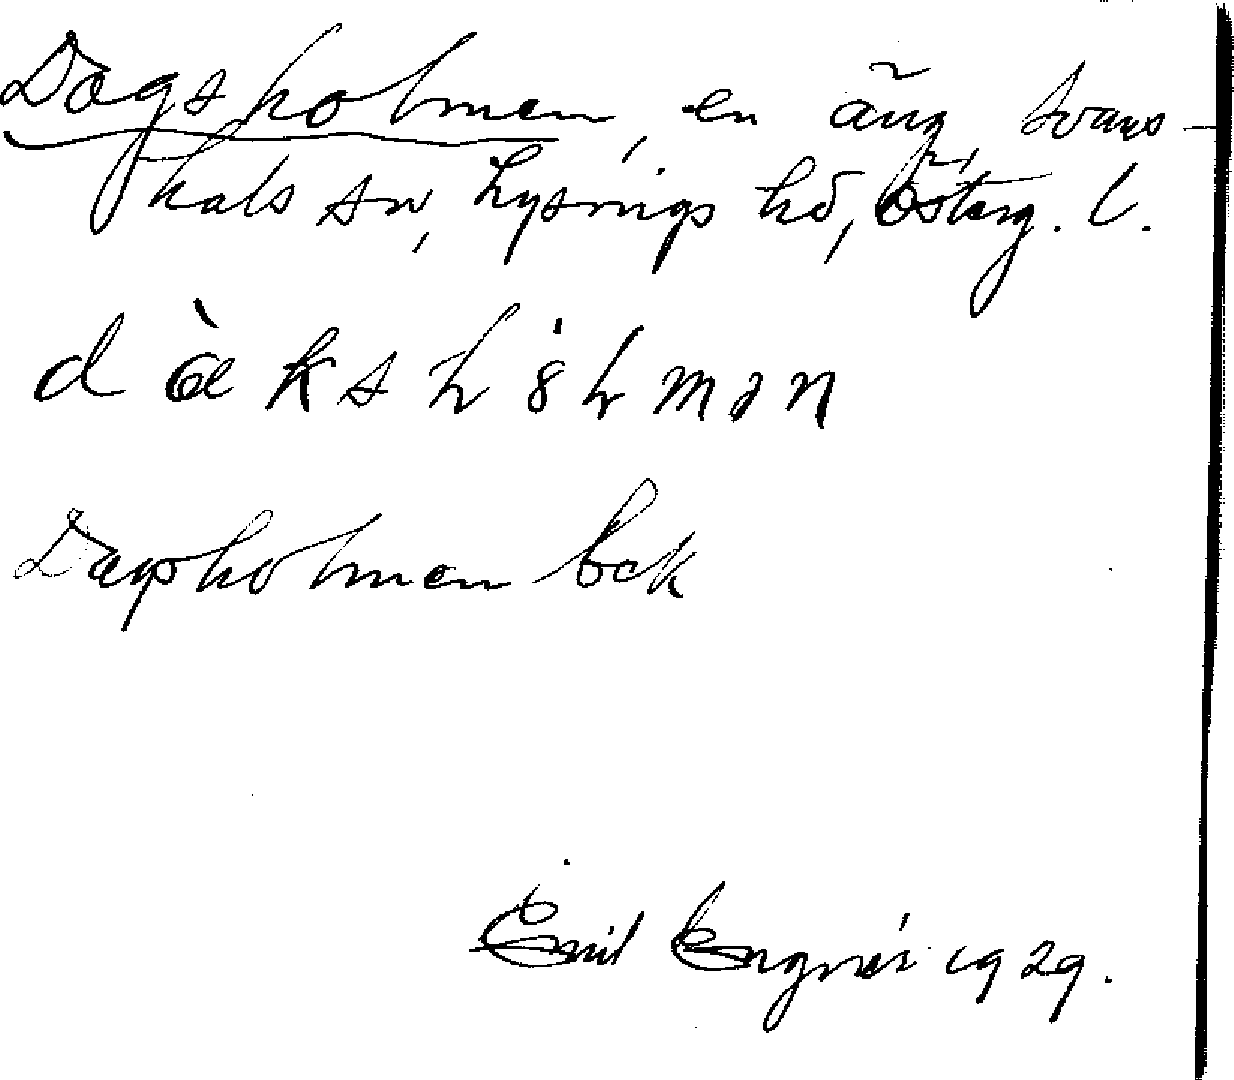 Dagsholmen, en äng, Svans-
hals sn, Lysings hd, Österg. l.
dàkshȯlmən
Dagsholmen bek
Emil Engnér 1929.